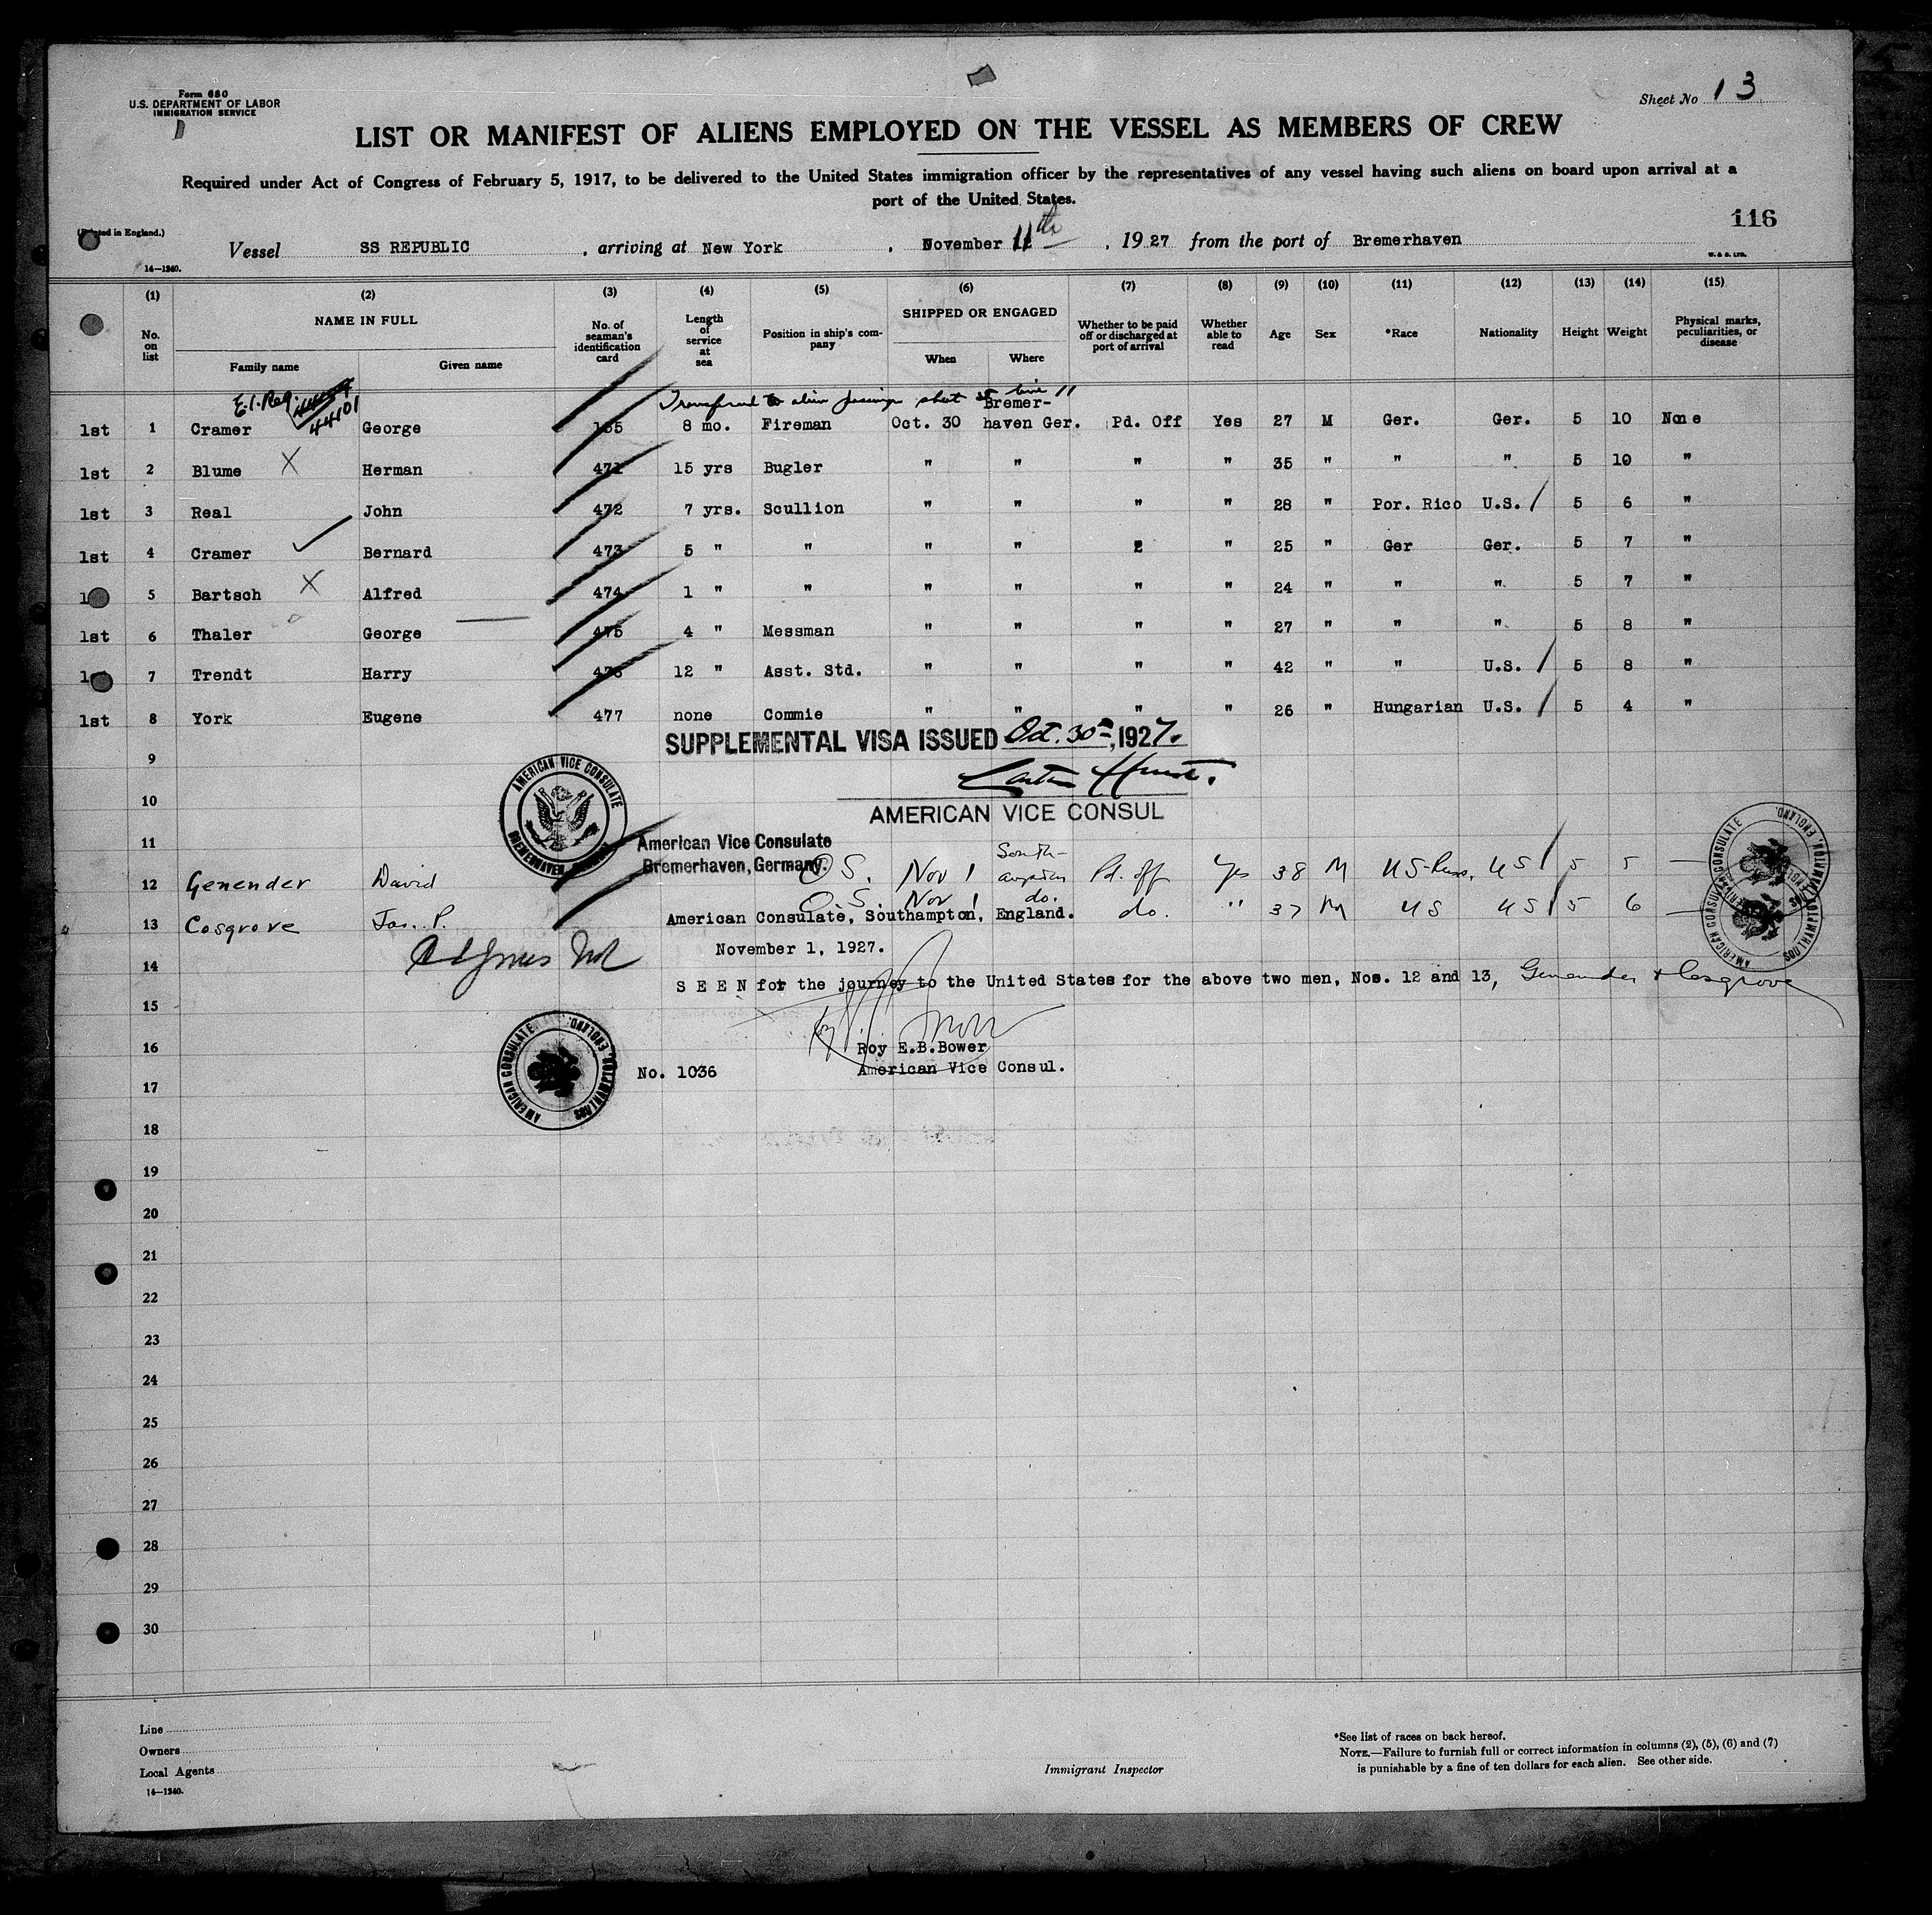 Form 680
U.S. DEPARTMENT OF LABOR
IMMIGRATION SERVICE
Sheet No 13
LIST OR MANIFEST OF ALIENS EMPLOYED ON THE VESSEL AS MEMBERS OF CREW
Required under Act of Congress of February 5, 1917, to be delivered to the United States immigration officer by the representatives of any vessel having such aliens on board upon arrival at a
port of the United States.
116
in England.)
Vessel SS REPUBLIC , arriving at New York , November 11th , 1927 from the port of Bremerhaven
14—1240. W. & S. LTD.
(1) (2) (3) (4) (5) (6) (7) (8) (9) (10) (11) (12) (13) (14) (15)
No. on list NAME IN FULL Family name Given name No. of seaman's identification card Length of service at sea Position in ship's company SHIPPED OR ENGAGED When Where Whether to be paid off or discharged at port of arrival Whether able to read Age Sex *Race Nationality Height Weight Physical marks, peculiarities, or disease
E.I. Reg. 4401
Transferred to alien passenger sheet line 11
1st 1 Cramer George 165 8 mo. Fireman Oct. 30 Bremer-haven Ger. Pd. Off Yes 27 M Ger. Ger. 5 10 None
1st 2 Blume X Herman 471 15 yrs Bugler " " " " 35 " " " 5 10 "
1st 3 Real John 472 7 yrs. Scullion " " " " 28 " Por. Rico U.S. / 5 6 "
1st 4 Cramer ✓ Bernard 473 5 " " " " 2 " 25 " Ger Ger. 5 7 "
5 Bartsch X Alfred 474 1 " " " " " " 24 " " " 5 7 "
1st 6 Thaler George 475 4 " Messman " " " " 27 " " " 5 8 "
7 Trendt Harry 476 12 " Asst. Std. " " " " 42 " " U.S. / 5 8 "
1st 8 York Eugene 477 none Commie " " " " 26 " Hungarian U.S. / 5 4 "
SUPPLEMENTAL VISA ISSUED Oct. 30th, 1927.
9
AMERICAN VICE CONSULATE BREMERHAVEN, GERMANY
10
AMERICAN VICE CONSUL
11
American Vice Consulate
Bremerhaven, Germany.
12 Genender David O.S. Nov 1 South-ampton Pd. off Yes 38 M US-Russ. US / 5 5 —
13 Cosgrove Jas. P. O.S. Nov 1 do. do. " 37 M US US / 5 6 —
American Consulate, Southampton, England.
AMERICAN CONSULATE SOUTHAMPTON, ENGLAND.
AMERICAN CONSULATE SOUTHAMPTON, ENGLAND.
November 1, 1927.
14
SEEN for the journey to the United States for the above two men, Nos. 12 and 13, Genender & Cosgrove
15
16
Roy E.B.Bower
American Vice Consul.
AMERICAN CONSULATE SOUTHAMPTON, ENGLAND.
No. 1036
17
18
19
20
21
22
23
24
25
26
27
28
29
30
Line
Owners
Local Agents
14—1240.
Immigrant Inspector
*See list of races on back hereof.
NOTE.—Failure to furnish full or correct information in columns (2), (5), (6) and (7)
is punishable by a fine of ten dollars for each alien. See other side.